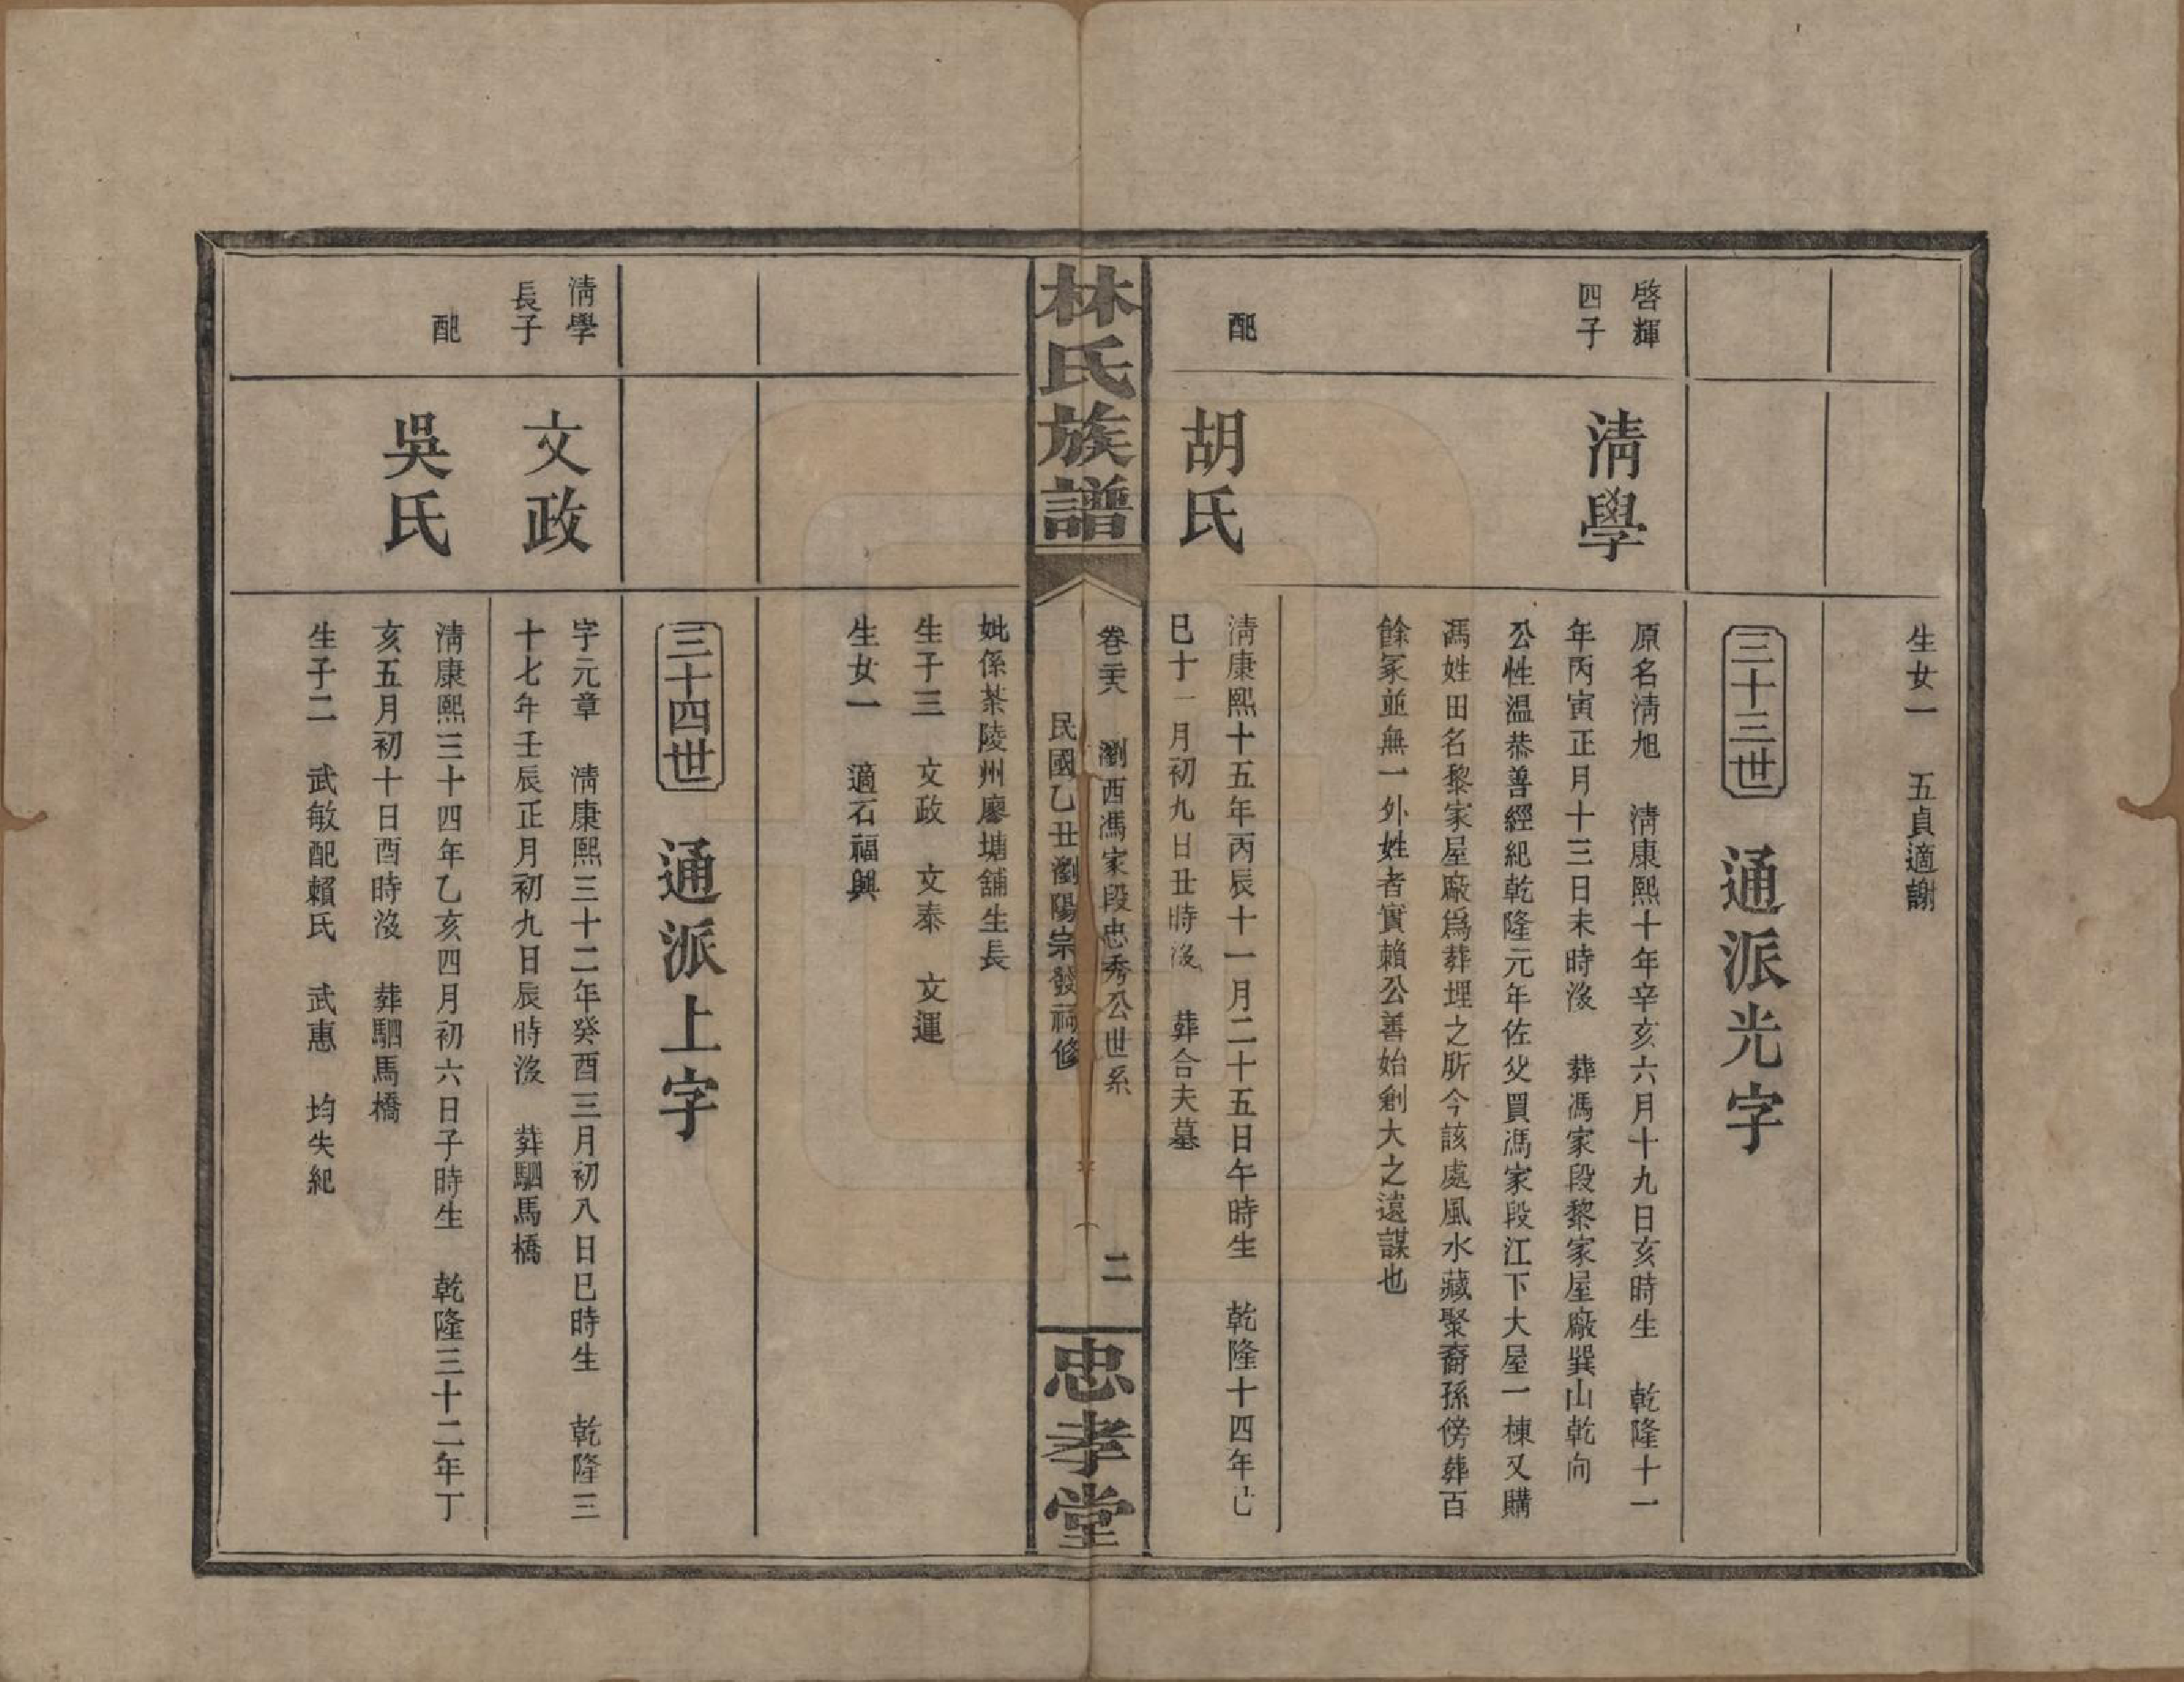 生女一　五貞適謝
三十三世　通派光字
啓輝
四子
清學
原名清旭　清康熙十年辛亥六月十九日亥時生　乾隆十一
年丙寅正月十三日未時沒　葬馮家段黎家屋廠巽山乾向
公性溫恭善經紀乾隆元年佐父買馮家段江下大屋一棟又購
馮姓田名黎家屋廠爲葬埋之所今該處風水藏聚裔孫傍葬百
餘冢並無一外姓者實賴公善始創大之遠謀也
配
胡氏
清康熙十五年丙辰十一月二十五日午時生　乾隆十四年己
巳十一月初九日丑時沒　葬合夫墓
林氏族譜
卷二十六　瀏西馮家段忠秀公世系
二
民國乙丑瀏陽宗發祠修
忠孝堂
妣係茶陵州廖塘舖生長
生子三　文政　文泰　文運
生女一　適石福興
三十四世　通派上字
清學
長子
文政
字元章　清康熙三十二年癸酉三月初八日巳時生　乾隆三
十七年壬辰正月初九日辰時沒　葬駟馬橋
配
吳氏
清康熙三十四年乙亥四月初六日子時生　乾隆三十二年丁
亥五月初十日酉時沒　葬駟馬橋
生子二　武敏配賴氏　武惠　均失紀